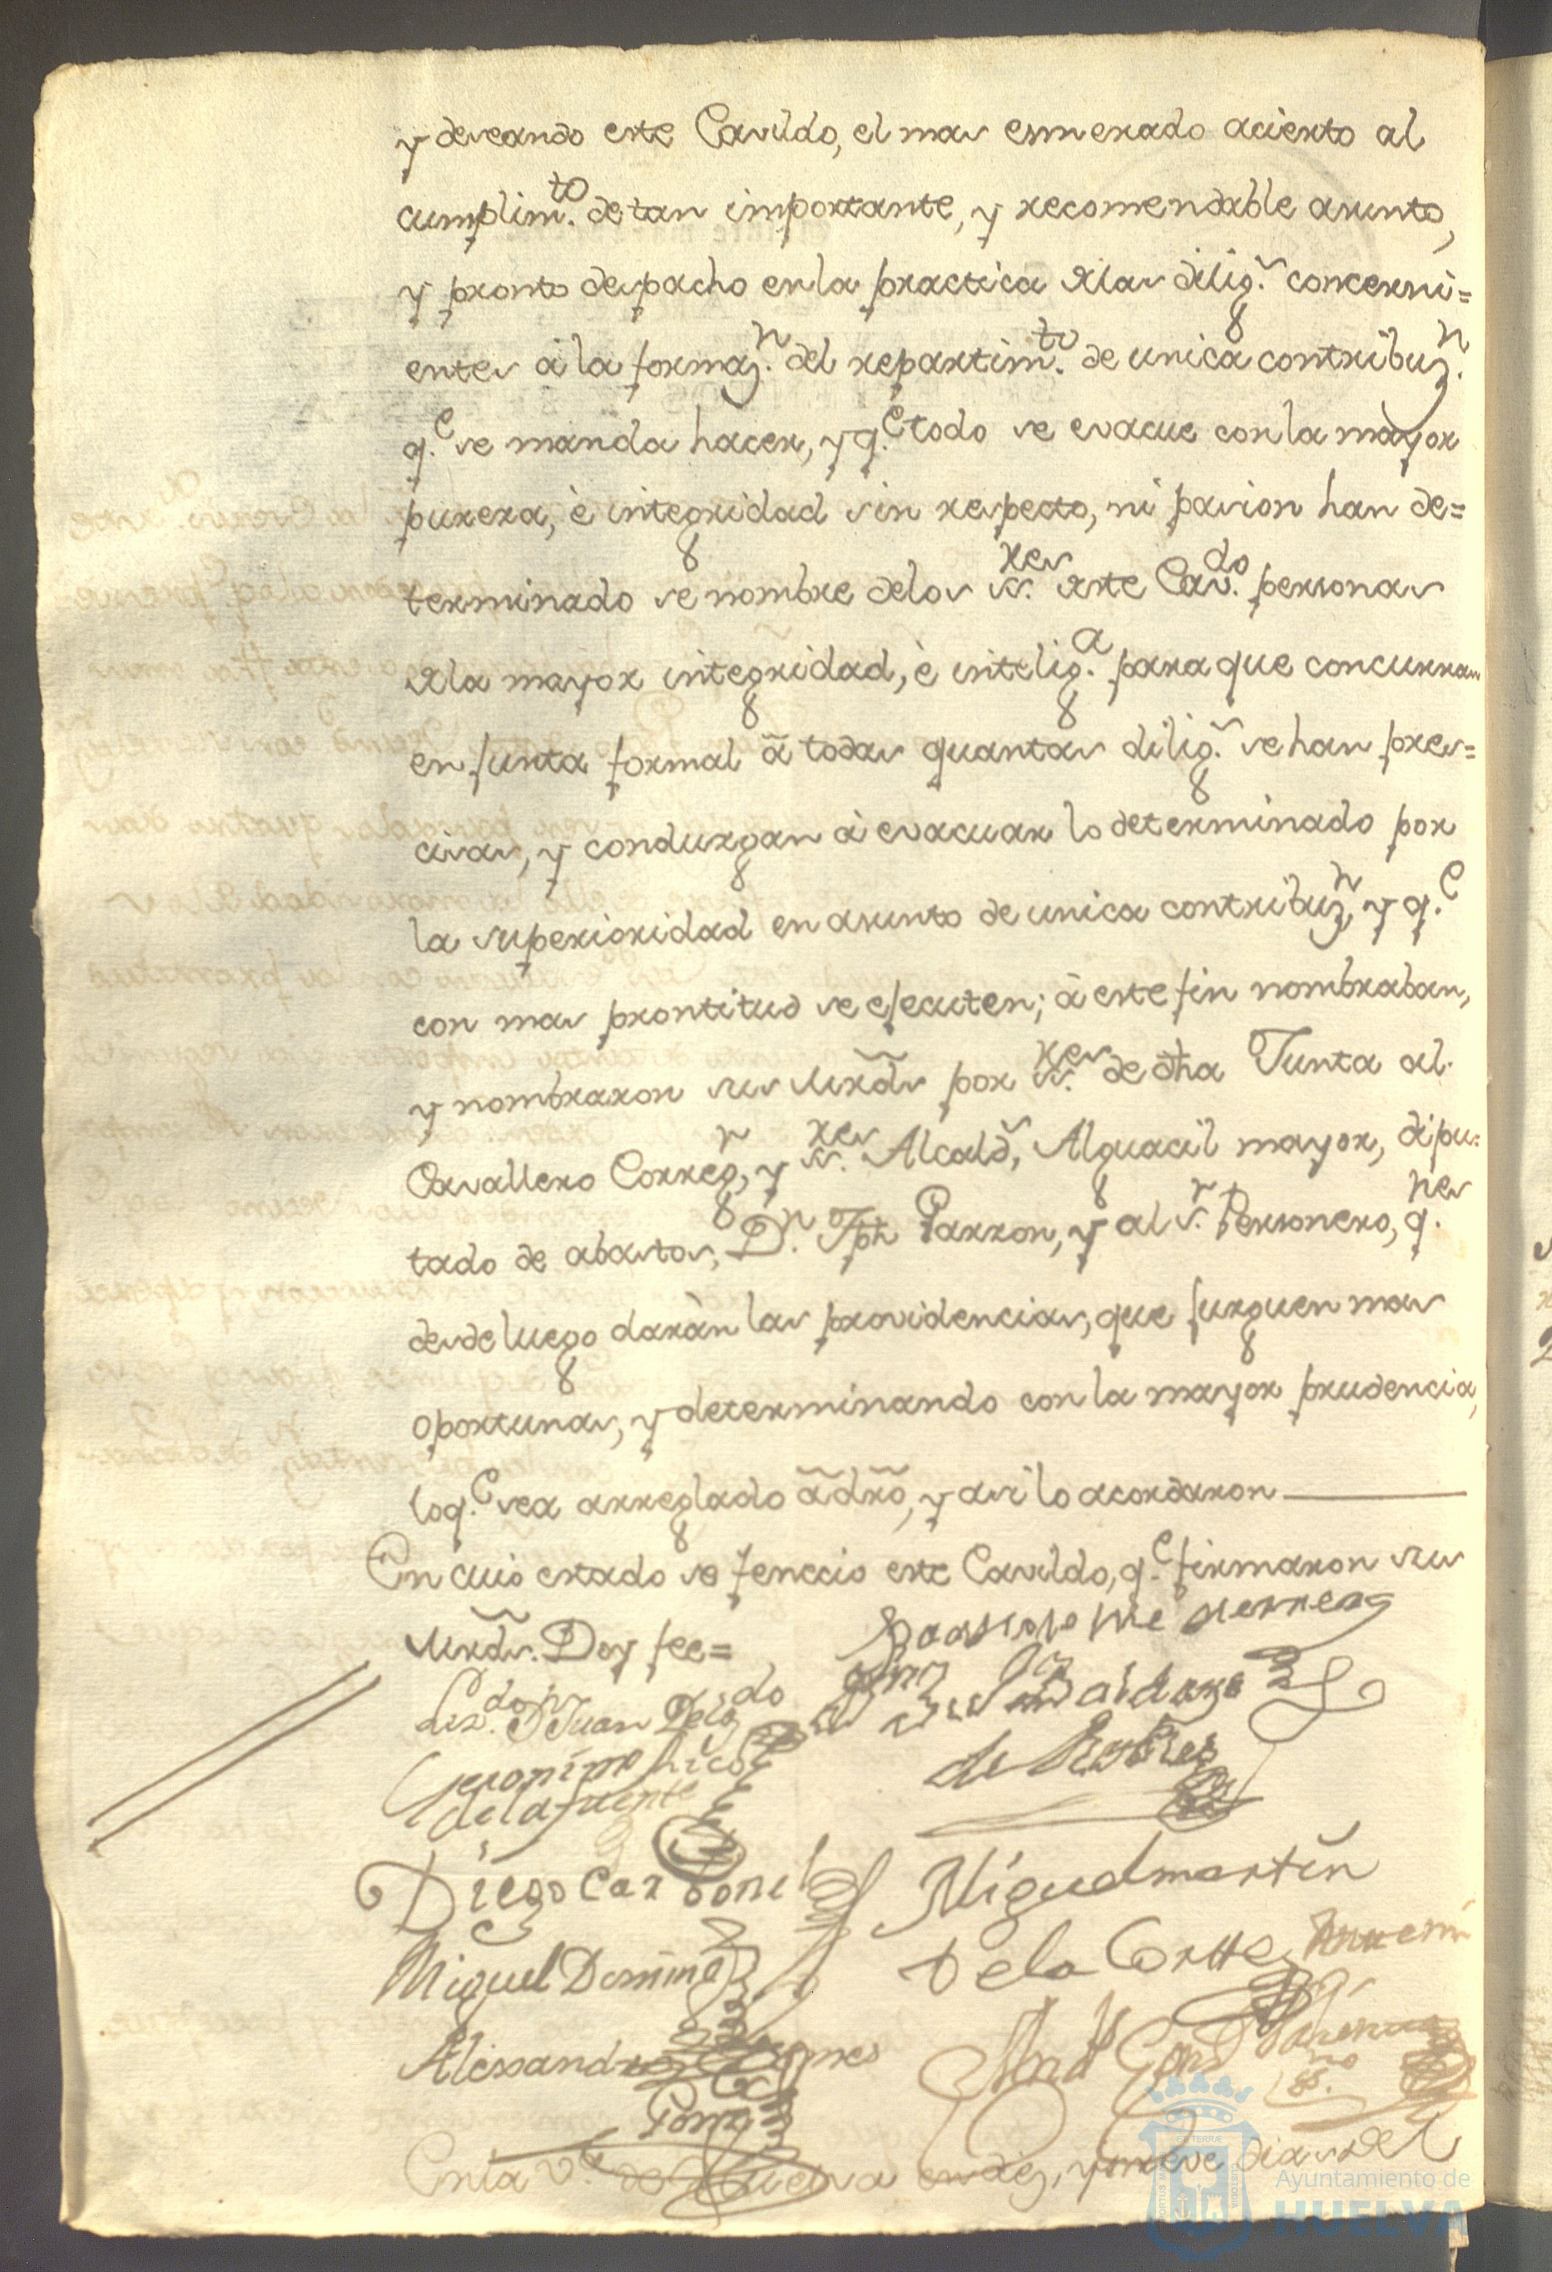 y deseando este Cavildo, el mas esmerado acierto al
cumplim.to de tan importante, y recomendable asunto,
y pronto despacho en la practica de las dilig.s concerni=
entes à la formaz.n del repartim.to de unica contribuz.n
q.e se manda hacer, y q.e todo se evacue con la mayor
pureza, è integridad sin respecto, ni pasion han de=
terminado se nombre de los ss.res de este Cav.do personas
de la mayor integridad, è intelig.a para que concurran
en junta formal â todas quantas dilig.s se han pres=
cisas, y conduzgan à evacuar lo determinado por
la superioridad en asunto de unica contribuz.n, y q.e
con mas prontitud se ejecuten; à este fin nombraban,
y nombraron sus Mrds por ss.res de dha Junta al
Cavallero Correg.r, y ss.res Alcald.s, Alguacil mayor, dipu=
tado de abastos, D.n Jph Garzon, y al s.r Personero, q.nes
desde luego daràn las providencias, que jurguen mas
oportunas, y determinando con la mayor prudencia,
lo q.e sea arreglado â dro, y asi lo acordaron
En cuio estado se fenecio este Cavildo, q.e firmaron sus
Mrds. Doy fee=
Liz.do D.n Juan Delg.do
Geronimo Rico
de la fuente
de Robles
Diego Carbonel
Miguel martin
De la Corte
Miguel Doming.z
Alexandro Gomez
En la v.a de Huelva en diez, y nueve dias del
Ayuntamiento de
HUELVA